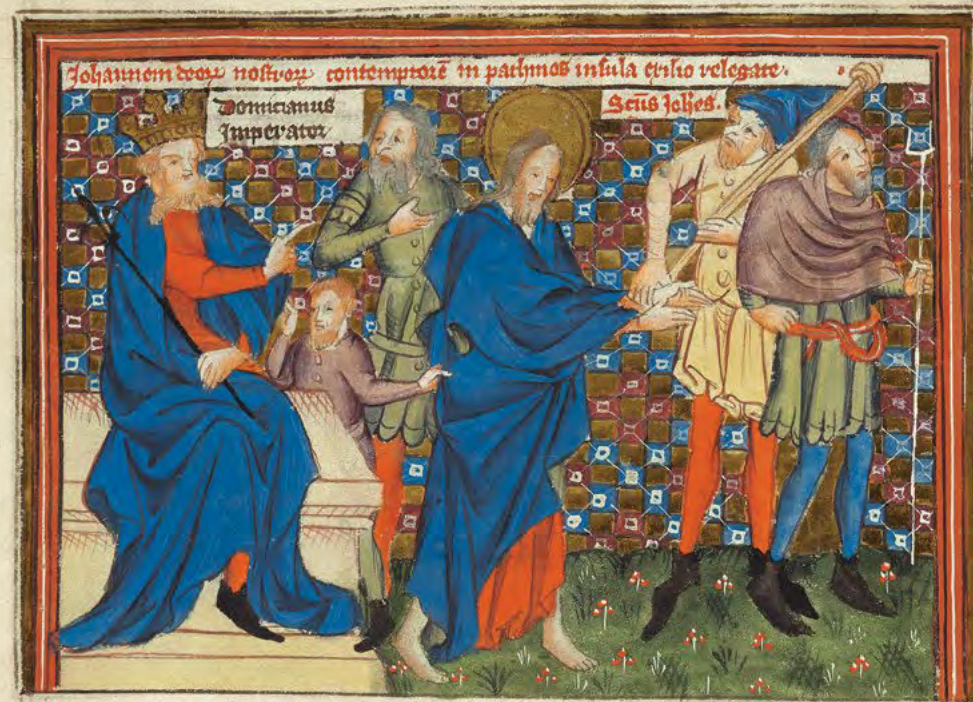 Johannem deoꝝ nostroꝝ contemptorē in pathmos insula exilio relegate.
Domicianus
Imperator
Scūs Joh̄es.